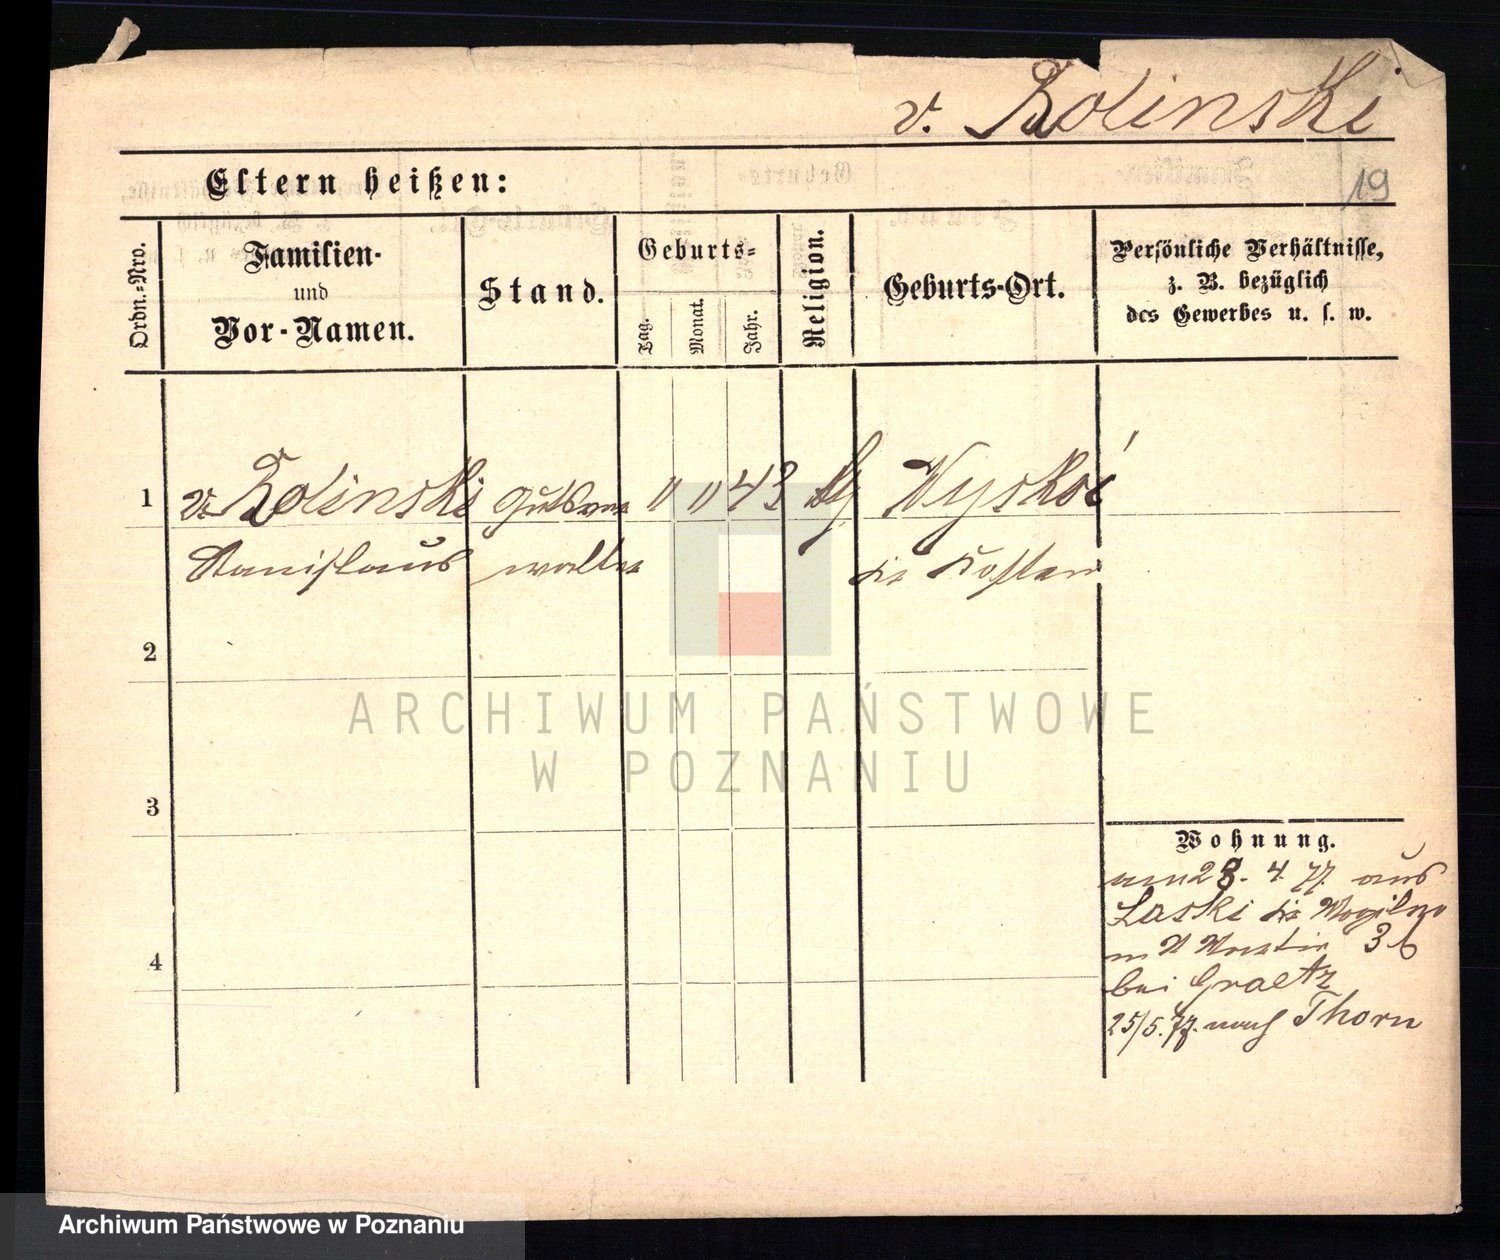 v. Zolinski
19
Eltern heißen:
Ordn.-Nro.
Familien-
und
Vor-Namen.
Stand.
Geburts-
Tag.
Monat.
Jahr.
Religion.
Geburts-Ort.
Persönliche Verhältnisse,
z. B. bezüglich
des Gewerbes u. s. w.
1 v. Zolinski Gutsver " " 43 Wyskoć
Stanislaus walter Kosten
2
3
4
Wohnung.
am 28. 4. 77. aus
Laski Mogilno
n 36
bei Graetz
25/5. 77. nach Thorn
ARCHIWUM PAŃSTWOWE
W POZNANIU
Archiwum Państwowe w Poznaniu